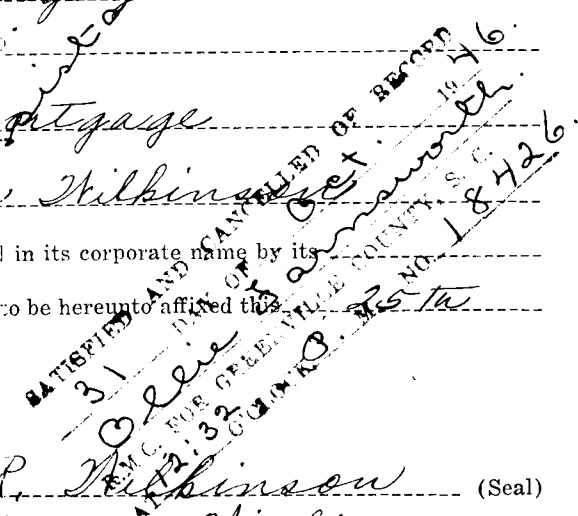 mortgage
Wilkinson
in its corporate name by its
to be hereunto affixed this 25th
R. Wilkinson (Seal)
SATISFIED AND CANCELLED OF RECORD
31 DAY OF Oct. 1946.
Ollie Farnsworth
R. M. C. FOR GREENVILLE COUNTY, S. C.
AT 12:32 O'CLOCK P. M. NO. 18426.